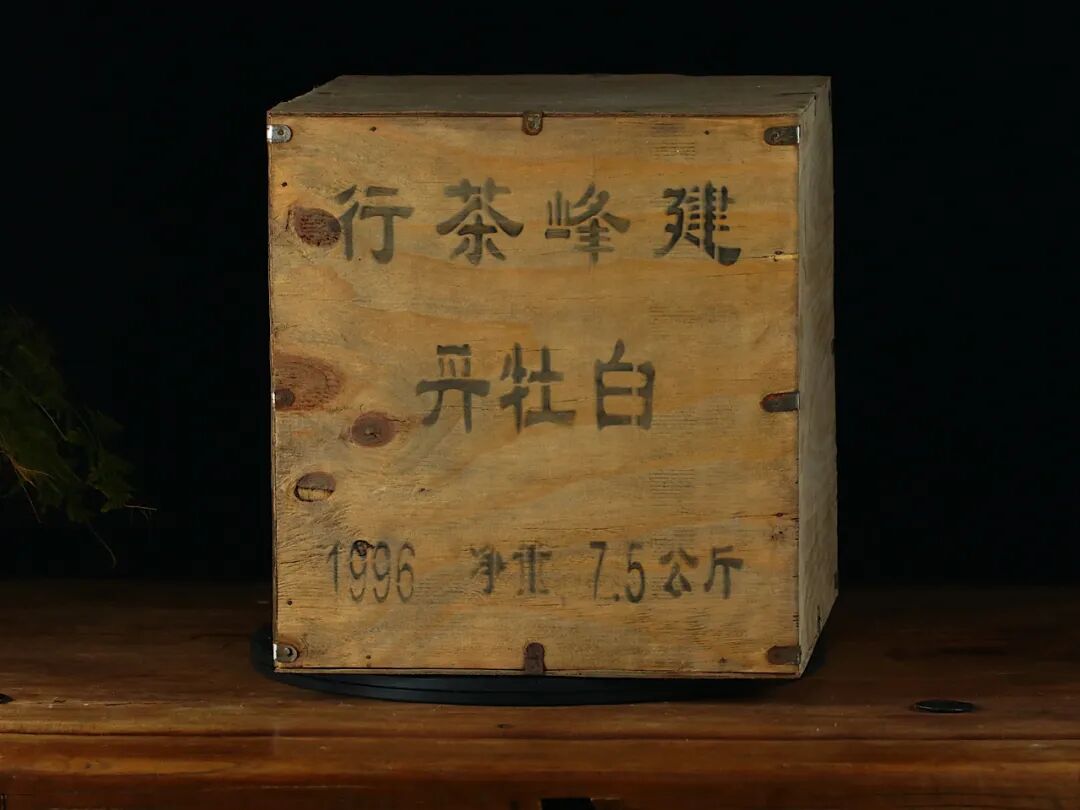 建峰茶行
白牡丹
1996 净重 7.5公斤